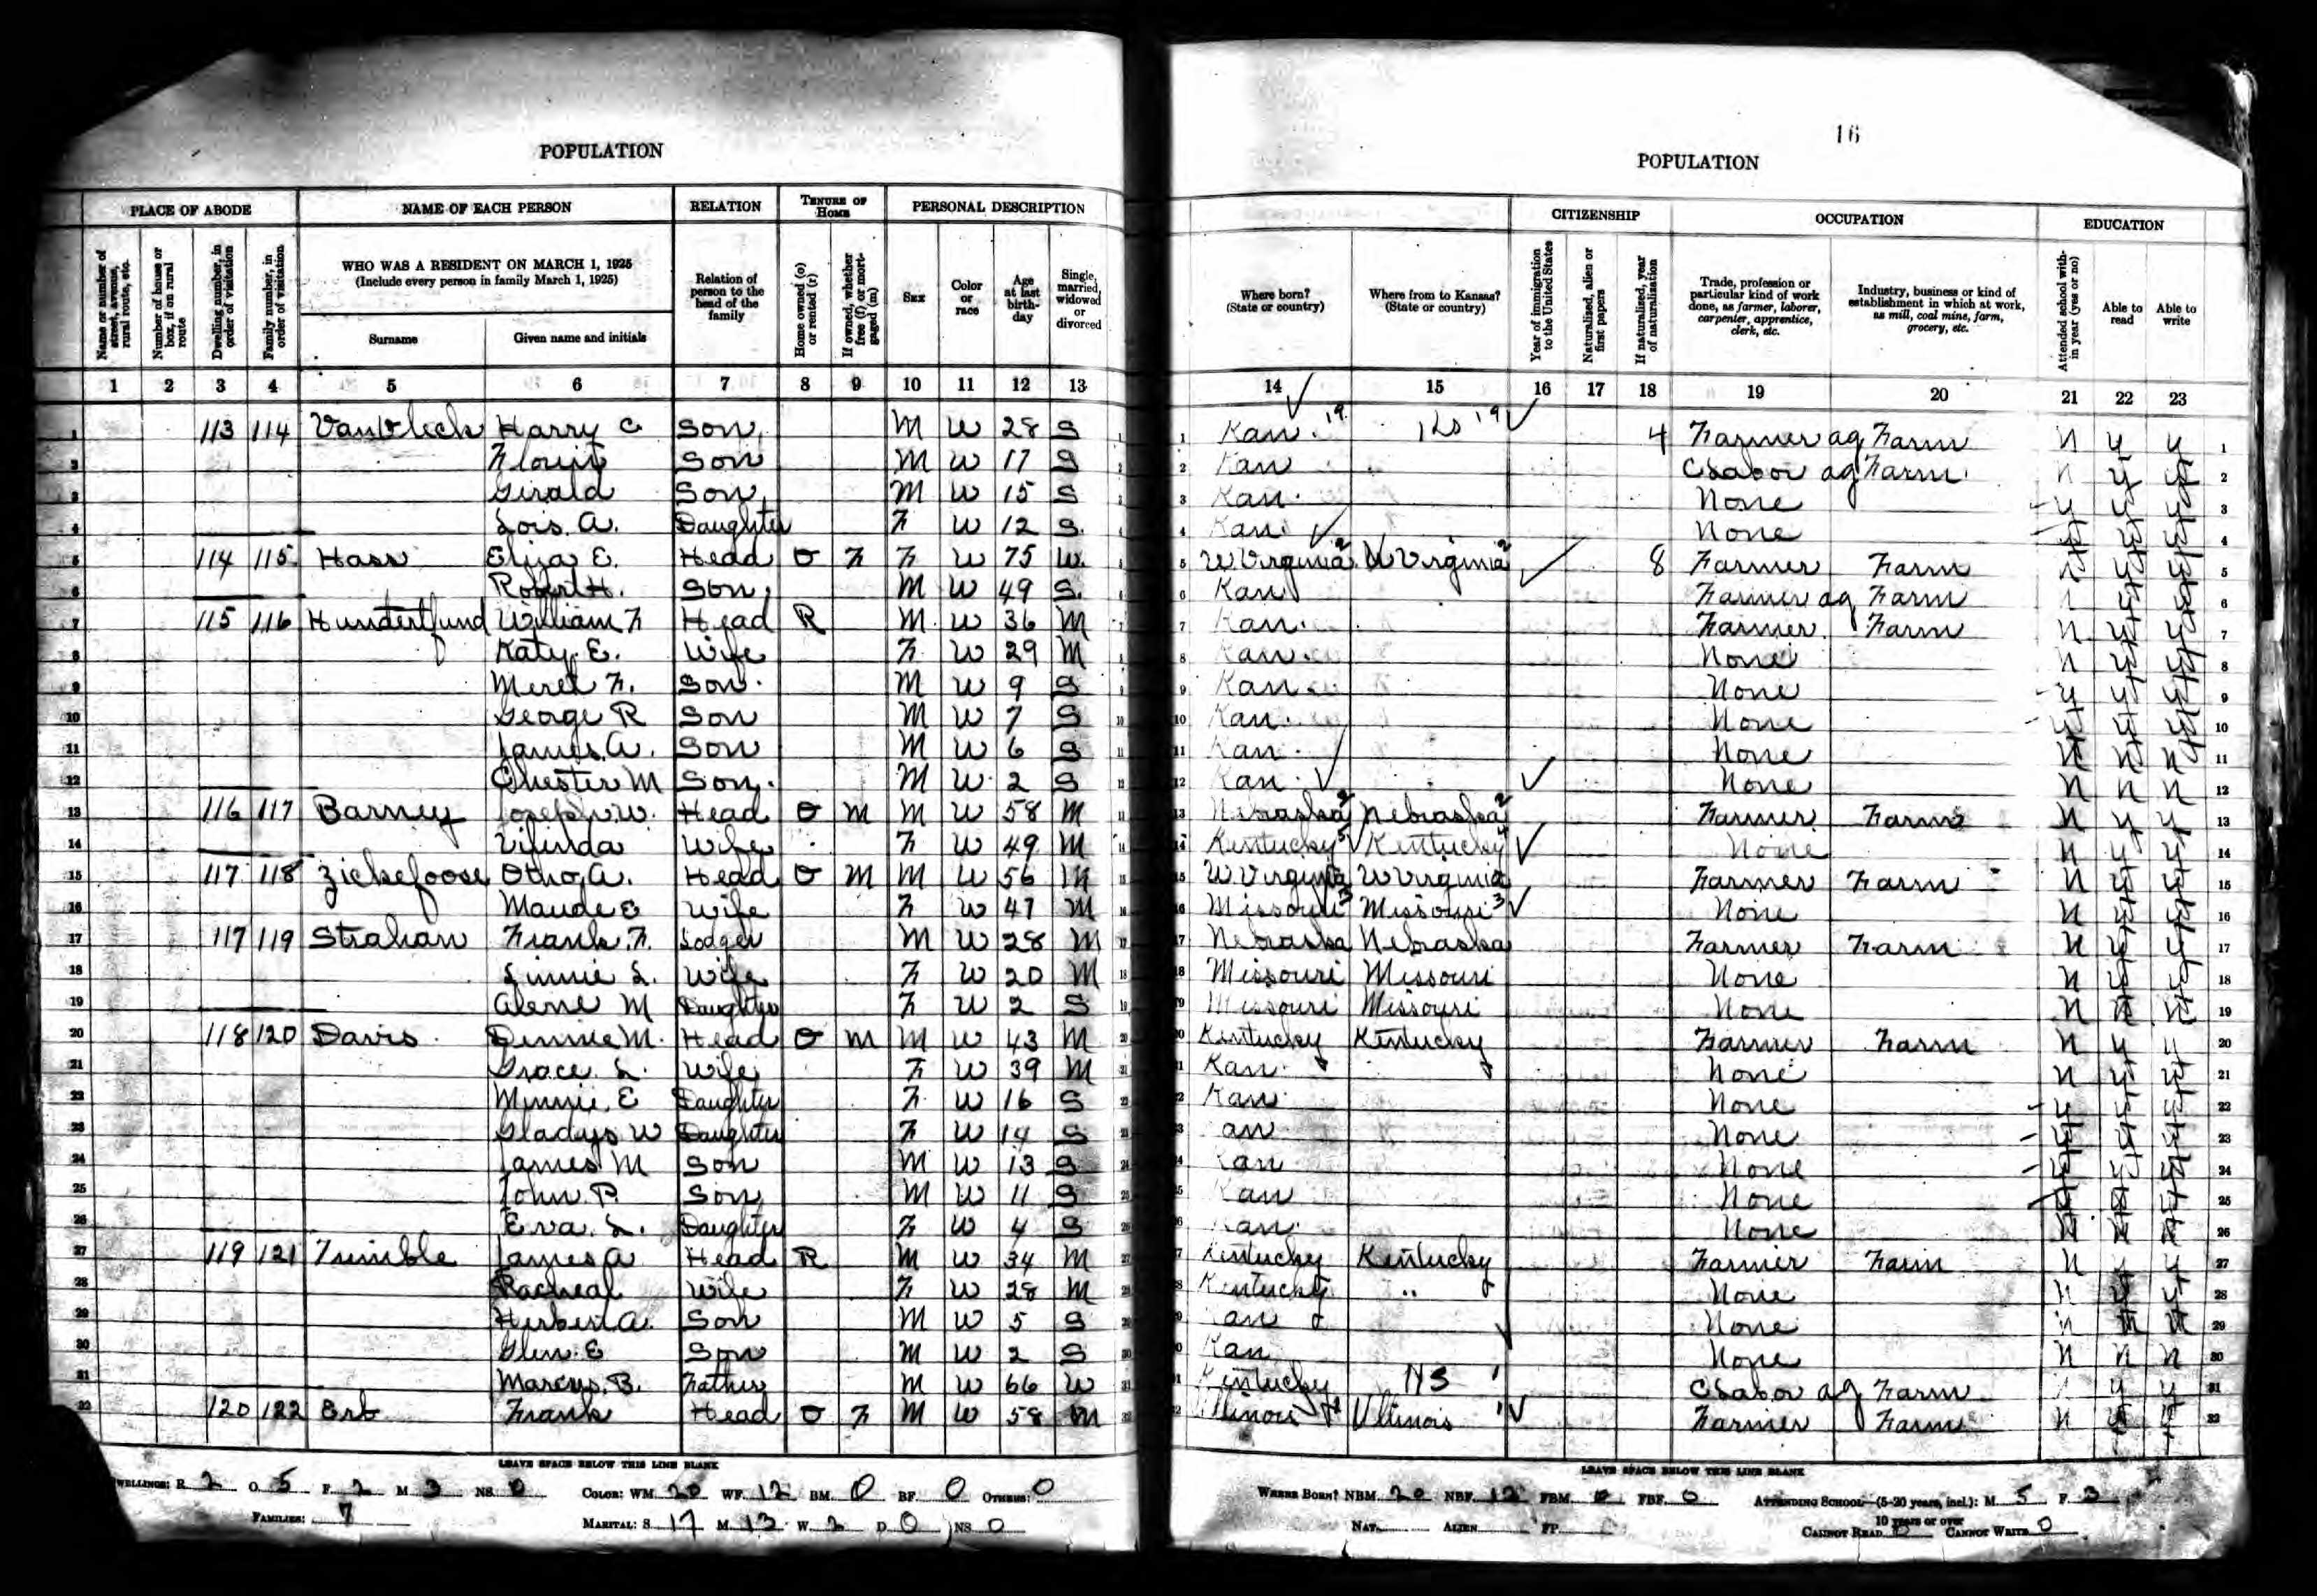 POPULATION
PLACE OF ABODE NAME OF EACH PERSON RELATION TENURE OF HOME PERSONAL DESCRIPTION
Name or number of street, avenue, rural route, etc. Number of house or box, if on rural route Dwelling number, in order of visitation Family number, in order of visitation WHO WAS A RESIDENT ON MARCH 1, 1925 (Include every person in family March 1, 1925) Surname Given name and initials Relation of person to the head of the family Home owned (o) or rented (r) If owned, whether free (f) or mortgaged (m) Sex Color or race Age at last birthday Single, married, widowed or divorced
1 2 3 4 5 6 7 8 9 10 11 12 13
1 113 114 VanVleck Harry C Son M W 28 S 1
2 Son M W 17 S 2
3 Gerald Son M W 15 S 3
4 Lois A. Daughter F W 12 S. 4
5 114 115 Hass Eliza E. Head O F F W 75 W. 5
6 Robert H. Son M W 49 S. 6
7 115 116 Hundertfund William F Head R M W 36 M 7
8 Katy E. Wife F W 29 M 8
9 Merel F. Son M W 9 S 9
10 George R Son M W 7 S 10
11 James A. Son M W 6 S 11
12 Chester M Son M W 2 S 12
13 116 117 Barney Joseph W. Head O M M W 58 M 13
14 Wife F W 49 M 14
15 117 118 Zickefoose Otho A. Head O M M W 56 M 15
16 Maude E Wife F W 47 M 16
17 117 119 Strahan Frank F. Lodger M W 28 M 17
18 Linnie L. Wife F W 20 M 18
19 Alene M Daughter F W 2 S 19
20 118 120 Davis Dennie M. Head O M M W 43 M 20
21 Grace L. Wife F W 39 M 21
22 Minnie E Daughter F W 16 S 22
23 Gladys W Daughter F W 14 S 23
24 James M Son M W 13 S 24
25 John P. Son M W 11 S 25
26 Eva L. Daughter F W 4 S 26
27 119 121 Trimble James A Head R M W 34 M 27
28 Racheal Wife F W 28 M 28
29 Herbert A. Son M W 5 S 29
30 Glen E Son M W 2 S 30
31 Marcus B. Father M W 66 W 31
32 120 122 Erb Frank Head O F M W 58 M 32
LEAVE SPACE BELOW THIS LINE BLANK
DWELLINGS: R 2 O. 5 F. 2 M 3 NS 0 COLOR: WM 20 WF 12 BM 0 BF 0 OTHERS: 0
FAMILIES: 7 MARITAL: S 17 M. 13 W. 2 D 0 NS 0
16
POPULATION
CITIZENSHIP OCCUPATION EDUCATION
Where born? (State or country) Where from to Kansas? (State or country) Year of immigration to the United States Naturalized, alien or first papers If naturalized, year of naturalization Trade, profession or particular kind of work done, as farmer, laborer, carpenter, apprentice, clerk, etc. Industry, business or kind of establishment in which at work, as mill, coal mine, farm, grocery, etc. Attended school within year (yes or no) Able to read Able to write
14 15 16 17 18 19 20 21 22 23
1 Kan. 19 Ks 19 4 Farmer ag Farm n y y 1
2 Kan Labor ag Farm n y y 2
3 Kan. None y y y 3
4 Kan. None y y y 4
5 W Virginia 2 W Virginia 2 8 Farmer Farm n y y 5
6 Kan Farmer ag Farm n y y 6
7 Kan. Farmer Farm n y y 7
8 Kan. None n y y 8
9 Kan None y y y 9
10 Kan. None y y y 10
11 Kan. None n n n 11
12 Kan. None n n n 12
13 Nebraska 2 Nebraska 2 Farmer Farm n y y 13
14 Kentucky Kentucky None n y y 14
15 W Virginia W Virginia Farmer Farm n y y 15
16 Missouri 3 Missouri 3 None n y y 16
17 Nebraska Nebraska Farmer Farm n y y 17
18 Missouri Missouri None n y y 18
19 Missouri Missouri None n n n 19
20 Kentucky Kentucky Farmer Farm n y y 20
21 Kan. None n y y 21
22 Kan None y y y 22
23 an None y y y 23
24 Kan None y y y 24
25 Kan None 25
26 Kan. None n n n 26
27 Kentucky Kentucky Farmer Farm n y y 27
28 Kentucky " None n y y 28
29 an None n n n 29
30 Kan None n n n 30
31 Kentucky NS Labor ag Farm y y 31
32 Illinois Illinois Farmer Farm n y y 32
LEAVE SPACE BELOW THIS LINE BLANK
WHERE BORN? NBM 20 NBF 12 FBM 0 FBF 0 ATTENDING SCHOOL—(5-20 years, incl.): M 5 F. 3
NAT. ALIEN FP 10 years or over CANNOT READ 0 CANNOT WRITE 0